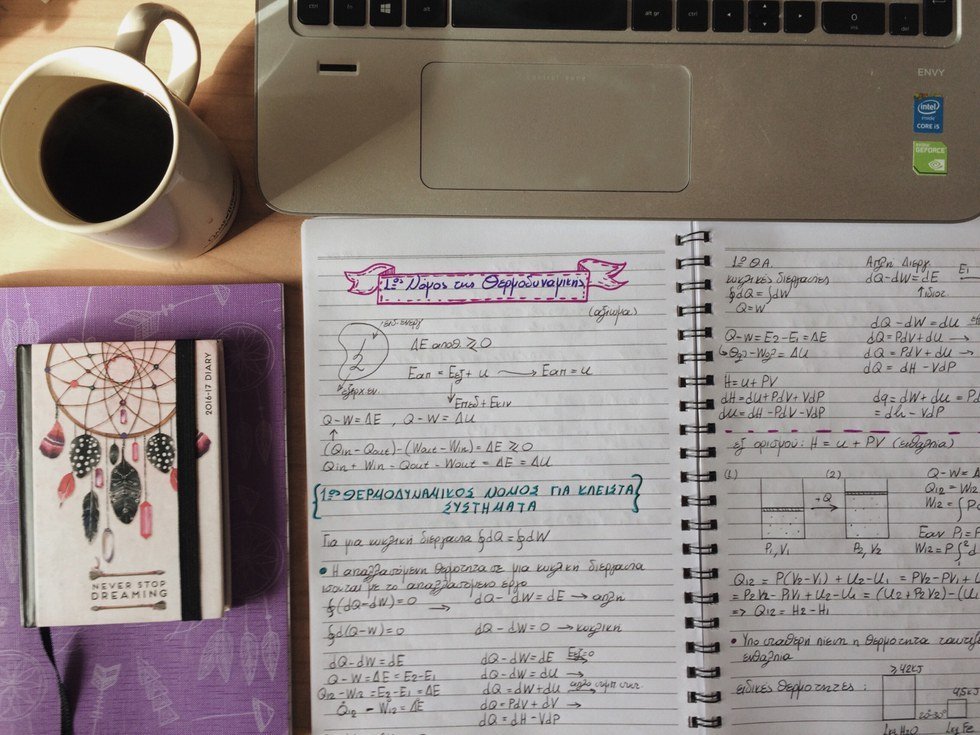 ctrl
fn
alt
alt gr
ctrl
0
ins
del
ENVY
intel
inside
CORE i5
NVIDIA
GEFORCE
2016-17 DIARY
NEVER STOP
DREAMING
1ος Νόμος της Θερμοδυναμικής
(αξίωμα)
ΔΕ απομ ≥ 0
Εαπ = Εεξ + u → Εαπ = u
Επεδ + Εκιν
Q - W = ΔΕ , Q - W = ΔU
(Qin - Qout) - (Wout - Win) = ΔΕ ≥ 0
Qin + Win - Qout - Wout = ΔΕ = ΔU
1ος ΘΕΡΜΟΔΥΝΑΜΙΚΟΣ ΝΟΜΟΣ ΓΙΑ ΚΛΕΙΣΤΑ
ΣΥΣΤΗΜΑΤΑ
Για μια κυκλική διεργασία ∮dQ = ∮dW
• Η ανταλλασσόμενη θερμότητα σε μια κυκλική διεργασία
ισούται με το ανταλλασσόμενο έργο
∮(dQ-dW) = 0 → dQ - dW = dE → απλή
∮d(Q-W) = 0 dQ - dW = 0 → κυκλική
dQ - dW = dE dQ - dW = dE
Q - W = ΔΕ = Ε2 - Ε1 dQ - dW = dU →
Q12 - W12 = E2 - E1 = ΔΕ dQ = dW + dU →
Q12 - W12 = ΔΕ dQ = PdV + dV →
dQ = dH - VdP
1ος Θ.Α.
κυκλικές διεργασίες
∮dQ = ∮dW
Q = W
Απλή Διεργ.
dQ - dW = dE
E1
Q - W = E2 - E1 = ΔΕ
Q12 - W12 = ΔU
dQ - dW = du
dQ = PdV + du →
dQ = PdV + du →
dQ = dH - VdP
H = U + PV
dH = dU + PdV + VdP
dU = dH - PdV - VdP
dq = dW + du = Pd
= dh - VdP
εξ ορισμού: H = u + PV (ενθαλπία)
(1) (2)
+Q
P1, V1 P2, V2
Q - W = Δ
Q12 = W12
W12 = ∫ P
Εαν P1 = P
W12 = P ∫ d
Q12 = P(V2-V1) + U2 - U1 = PV2 - PV1 +
= P2V2 - P1V1 + U2 - U1 = (U2 + P2V2) - (U1
=> Q12 = H2 - H1
• Υπό σταθερή πίεση η θερμότητα ταυτίζ
ενθαλπία
ειδικές θερμότητες:
42KJ
4,5KJ
1kg H2O
1kg Fe